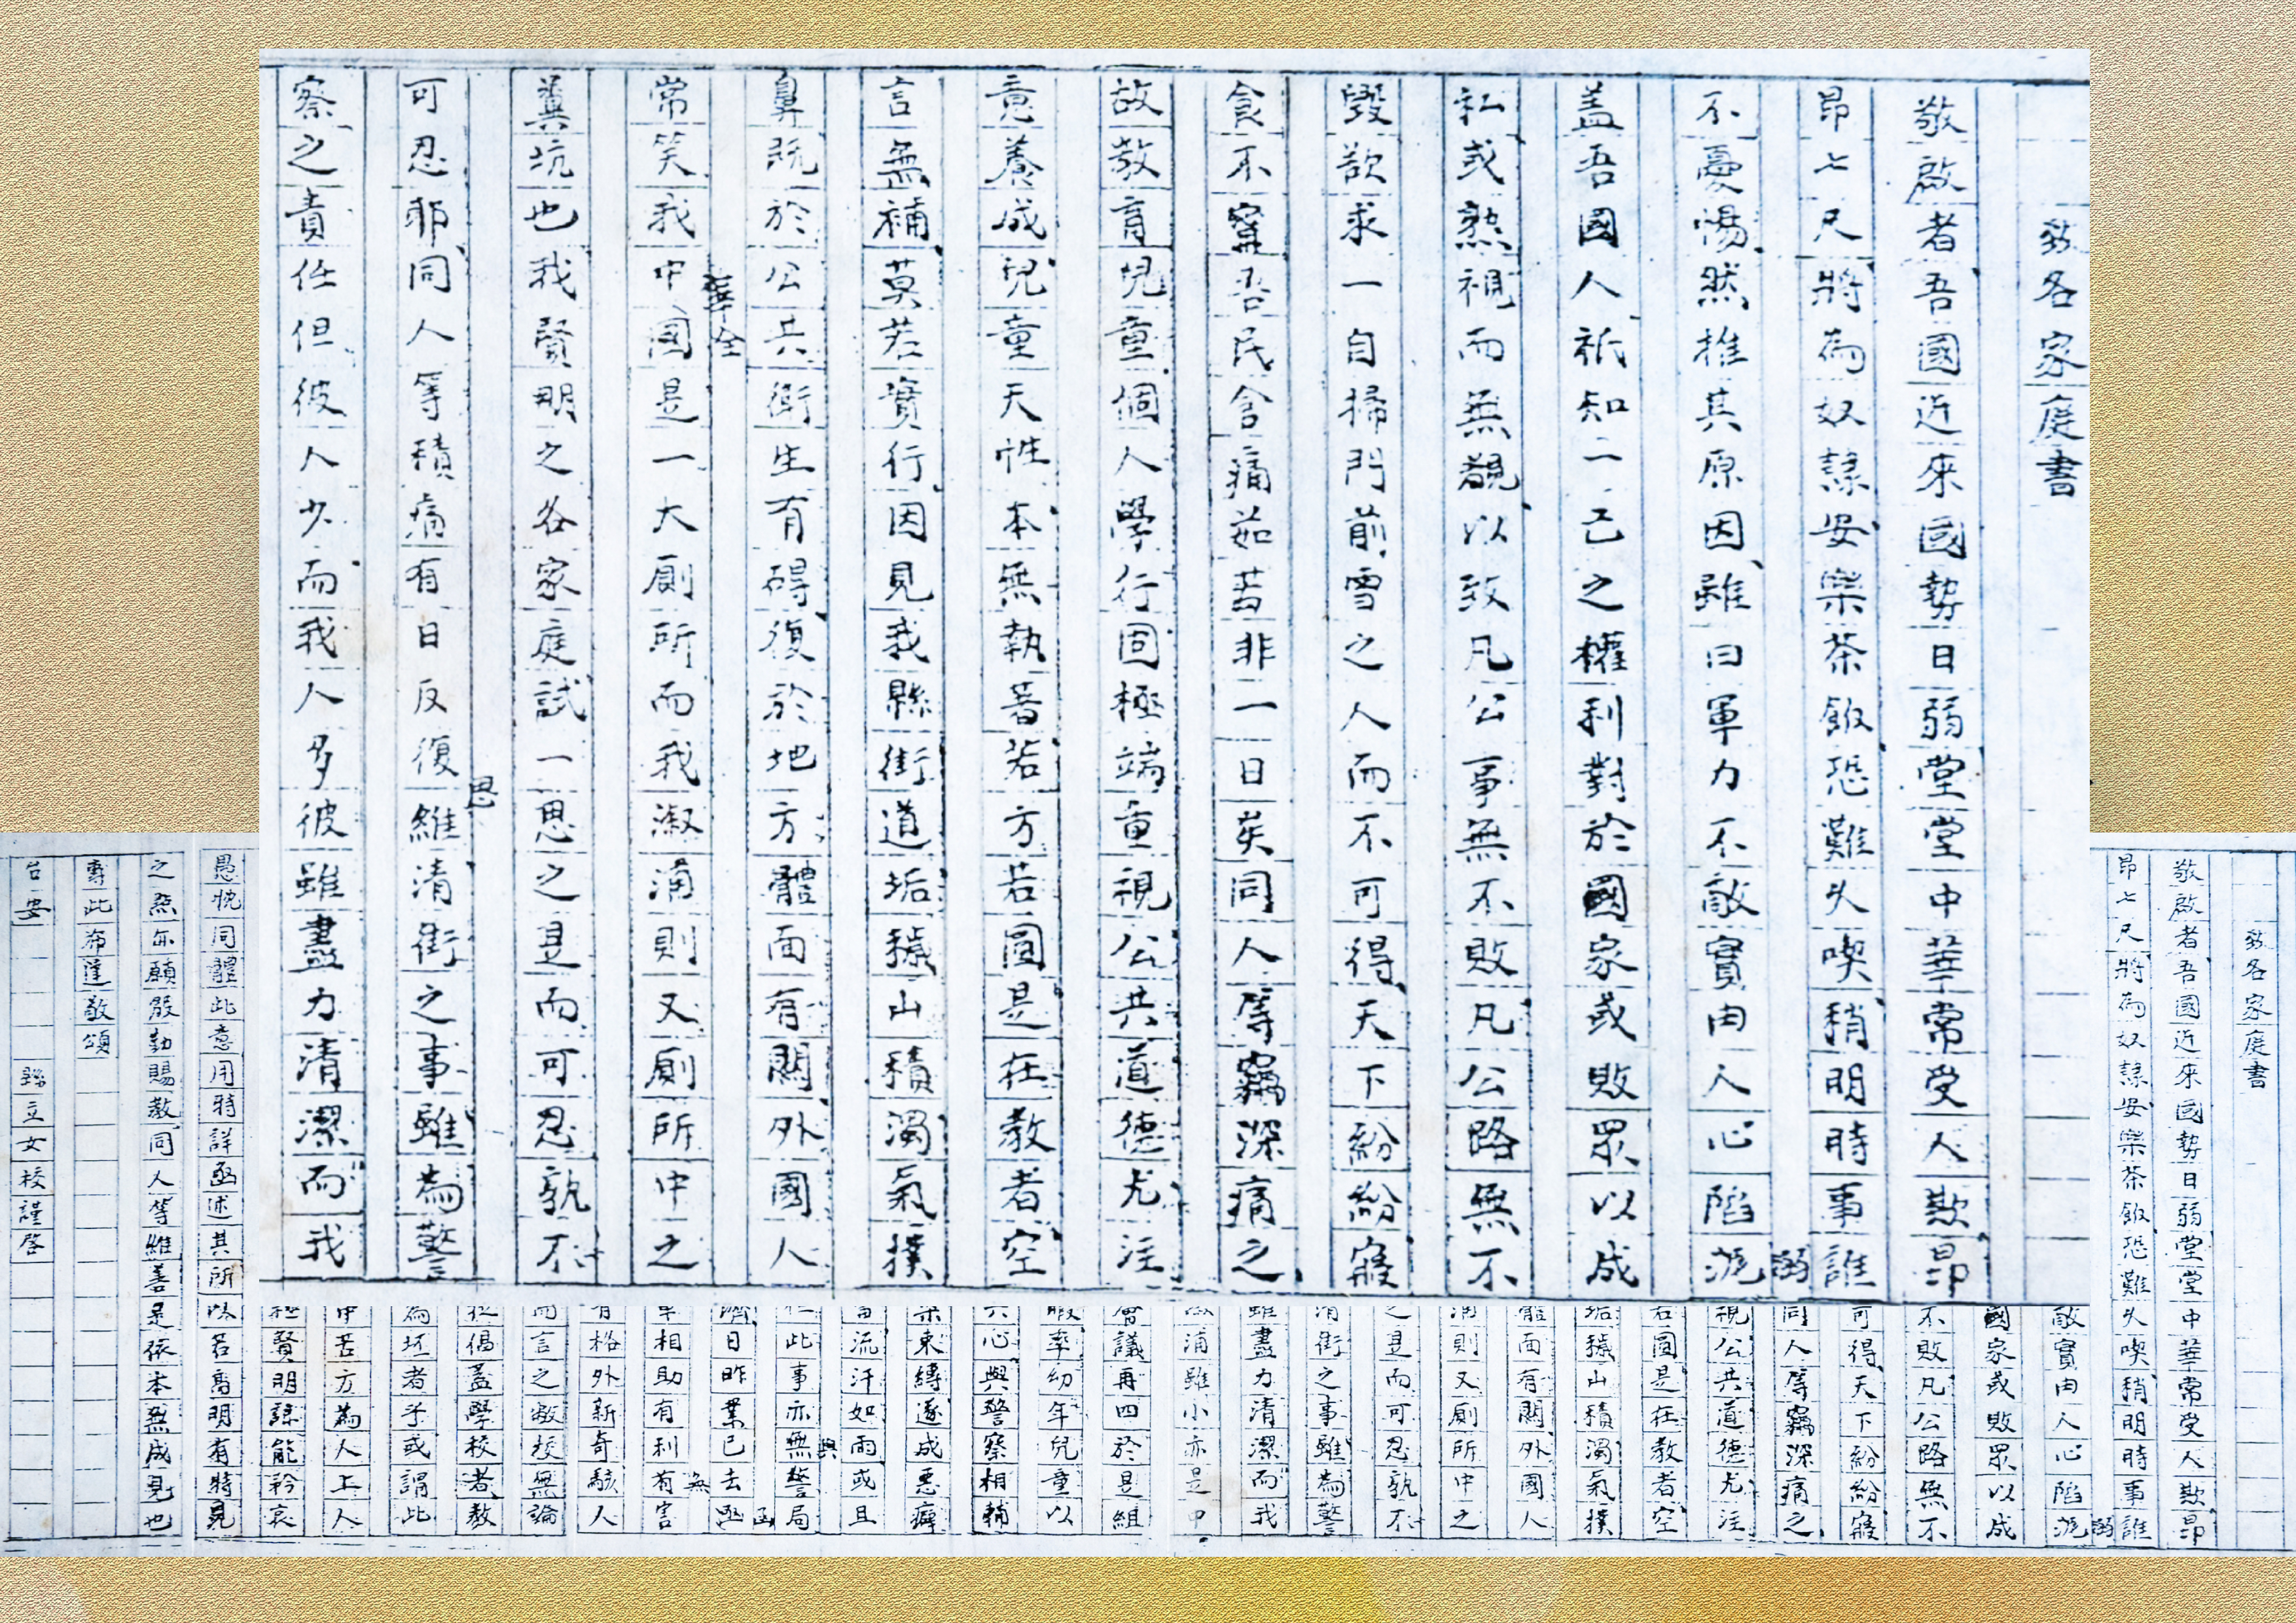 致各家庭書
敬啟者吾國近來國勢日弱堂堂中華常受人欺昂
昂七尺將為奴隸安樂茶飯恐難久喫稍明時事誰
不憂惕然推其原因雖曰軍力不敵實由人心陷溺
盖吾國人祇知一己之權利對於國家或敗眾以成
私或熟視而無覩以致凡公事無不敗凡公路無不
毀欲求一自掃門前雪之人而不可得天下紛紛寢
食不寧吾民含痛茹苦非一日矣同人等竊深痛之
故教育兒童個人學行固極端重視公共道德尤注
意養成兒童天性本無執著若方若圓是在教者空
言無補莫若實行因見我縣街道垢穢山積濁氣撲
鼻既於公共衛生有碍復於地方體面有關外國人
常笑我中國是一大廁所而我漵浦則又廁所中之
糞坑也我賢明之各家庭試一思之是而可忍孰不
可忍耶同人等積痛有日反復思維清街之事雖為警
察之責任但彼人少而我人多彼雖盡力清潔而我
致各家庭書
敬啟者吾國近來國勢日弱堂堂中華常受人欺昂
昂七尺將為奴隸安樂茶飯恐難久喫稍明時事誰
敵實由人心陷溺
國家或敗眾以成
不敗凡公路無不
可得天下紛紛寢
同人等竊深痛之
視公共道德尤注
若圓是在教者空
垢穢山積濁氣撲
體面有關外國人
浦則又廁所中之
之是而可忍孰不
清街之事雖為警
雖盡力清潔而我
漵浦雖小亦是中
會議再四於是組
暇率幼年兒童以
共心與警察相輔
束縛遂成惡癖
流汗如雨或且
此事亦無與警局
日昨業已去函
相助有利無有害
有格外新奇駭人
而言之敝校無論
從倡盖學校者教
為坯者乎或謂此
中苦方為人上人
賢明諒能矜哀
愚忱同體此意用特詳函述其所以若高明有特見
之點亦願殷勤賜教同人等維善是依本無成見也
專此布達敬頌
台安
縣立女校謹啓